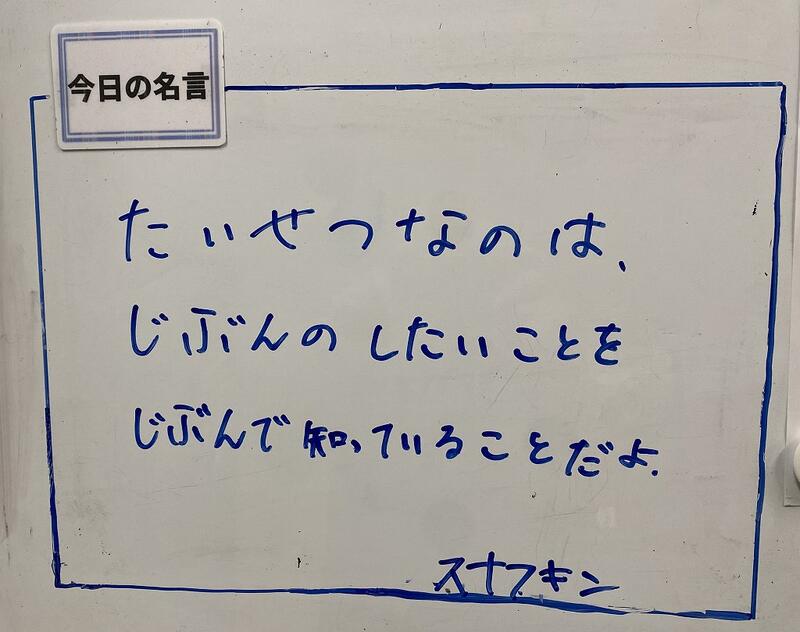 今日の名言
たいせつなのは、
じぶんのしたいことを
じぶんで知っていることだよ.
スナフキン